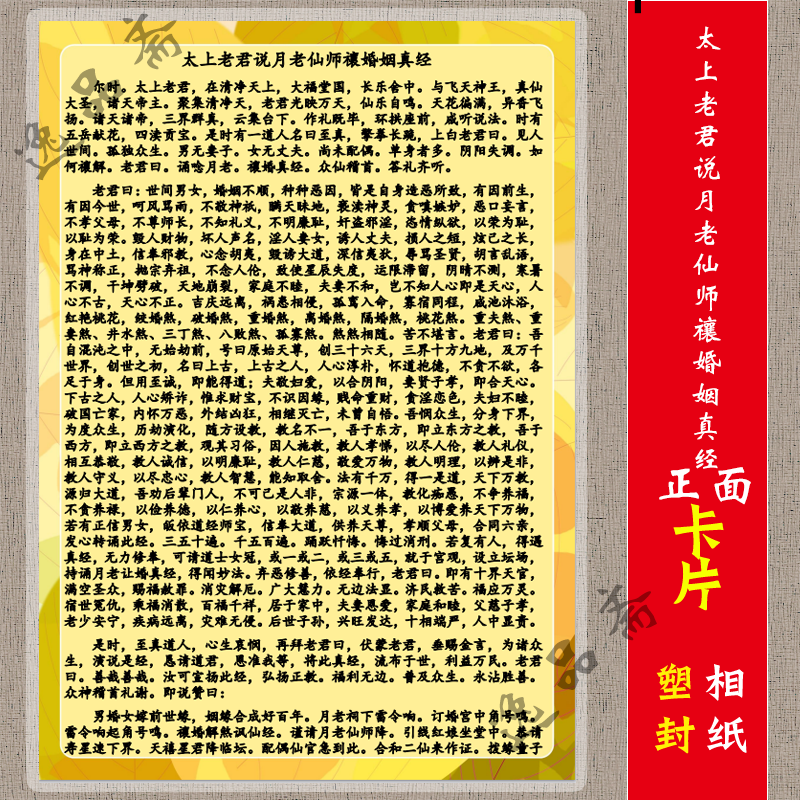 太上老君说月老仙师禳婚姻真经
尔时。太上老君，在清净天上，大福堂国，长乐舍中。与飞天神王，真仙
大圣，诸天帝主。聚集清净天，老君光映万天，仙乐自鸣。天花徧满，异香飞
扬。诸天诸帝，三界群真，云集台下。作礼既毕，环拱座前，咸听说法。时有
五岳献花，四渎贡宝。是时有一道人名曰至真，擎拳长跪，上白老君曰。见人
世间。孤独众生。男无妻子。女无丈夫。尚未配偶。单身者多。阴阳失调。如
何禳解。老君曰。诵唸月老。禳婚真经。众仙稽首。答礼齐听。
老君曰：世间男女，婚姻不顺，种种恶因，皆是自身造恶所致，有因前生，
有因今世，呵风骂雨，不敬神祇，瞒天昧地，亵渎神灵，贪嗔嫉妒，恶口妄言，
不孝父母，不尊师长，不知礼义，不明廉耻，奸盗邪淫，恣情纵欲，以荣为耻，
以耻为荣。毁人财物，坏人声名，淫人妻女，诱人丈夫，损人之短，炫己之长，
身在中土，信奉邪教，心念胡夷，毁谤大道，深信夷狄，辱骂圣贤，胡言乱语，
骂神称正，抛宗弃祖，不念人伦，致使星辰失度，运限滞留，阴晴不测，寒暑
不调，干坤劈破，天地崩裂，家庭不睦，夫妻不和，岂不知人心即是天心，人
心不古，天心不正。吉庆远离，祸患相侵，孤鸾入命，寡宿同程，咸池沐浴，
红艳桃花，绞婚煞，破婚煞，重婚煞，离婚煞，隔婚煞，桃花煞。重夫煞、重
妻煞、井水煞、三丁煞、八败煞、孤寡煞。煞煞相随。苦不堪言。老君曰：吾
自混沌之中，无始劫前，号曰原始天尊，创三十六天，三界十方九地，及万千
世界，创世之初，名曰上古，上古之人，人心淳朴，怀道抱德，不贪不欲，各
足于身。但用至诚，即能得道；夫敬如爱，以合阴阳，妻贤子孝，即合天心。
下古之人，人心矫诈，惟求财宝，不识因缘，贱命重财，贪淫恋色，夫妇不睦，
破国亡家，内怀万恶，外结凶狂，相继灭亡，未曾自悟。吾悯众生，分身下界，
为度众生，历劫演化，随方设教，教名不一，吾于东方，即立东方之教，吾于
西方，即立西方之教，观其习俗，因人施教，教人孝悌，以尽人伦，教人礼仪，
相互恭敬，教人诚信，以明廉耻，教人仁慈，敬爱万物，教人明理，以辨是非，
教人守义，以尽忠心，教人智慧，能知取舍。法有千万，得一是道，天下万教，
源归大道，吾劝后辈门人，不可己是人非，宗源一体，教化痴愿，不争养福，
不贪养禄，以俭养德，以仁养心，以敬养慈，以义养孝，以博爱养天下万物，
若有正信男女，皈依道经师宝，信奉大道，供养天尊，孝顺父母，合同六亲，
发心转诵此经。三五十遍。千五百遍。踊跃忏悔。悔过消刑。若复有人，得遇
真经，无力修奉，可请道士女冠，或一或二，或三或五，就于宫观，设立坛场，
持诵月老让婚真经，得闻妙法。弃恶修善，依经奉行，老君曰。即有十界天官，
满空圣众，赐福赦罪。消灾解厄。广大慧力。无边法显。济民救苦。福应万灵。
宿世冤仇，乘福消散，百福千祥，居于家中，夫妻恩爱，家庭和睦，父慈子孝，
老少安宁，疾病远离，灾难无侵。后世子孙，兴旺发达，十相端严，人中显贵。
是时，至真道人，心生哀悯，再拜老君曰，伏蒙老君，垂赐金言，为诸众
生，演说是经，恳请道君，恩准我等，将此真经，流布于世，利益万民。老君
曰。善哉善哉。汝可宣扬此经，弘扬正教。福利无边。普及众生。永沾胜善。
众神稽首礼谢。即说赞曰：
男婚女嫁前世缘，姻缘合成好百年。月老祠下雷令响。订婚宫中角号鸣。
雷令响起角号鸣。禳婚解煞讽仙经。谨请月老仙师降。引线红娘坐堂中。恭请
寿星速下界。天禧星君降临坛。配偶仙官急到此。合和二仙来作证。拨缘童子
太上老君说月老仙师禳婚姻真经
正面
卡片
塑封
相纸
逸品斋
逸品斋